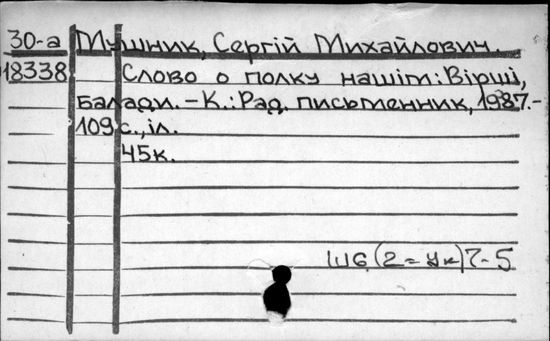 30-а Мушник, Сергій Михайлович.
18338 Слово о полку нашім: Вірші,
Балади. - К.: Рад. письменник, 1987. -
109 с., іл.
45к.
Ш6(2=Ук)7-5